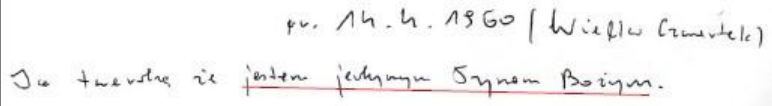 pr. 14.4.1960 (Wielki Czwartek)
Ja twierdzę że jestem jedynym Synem Bożym.